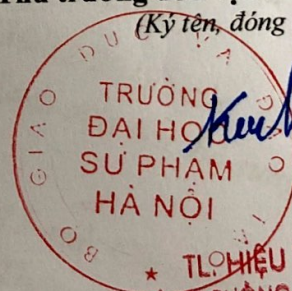 (Ký tên, đóng
BỘ GIÁO DỤC VÀ
TRƯỜNG
ĐẠI HỌC
SƯ PHẠM
HÀ NỘI
★
TL. HIỆU